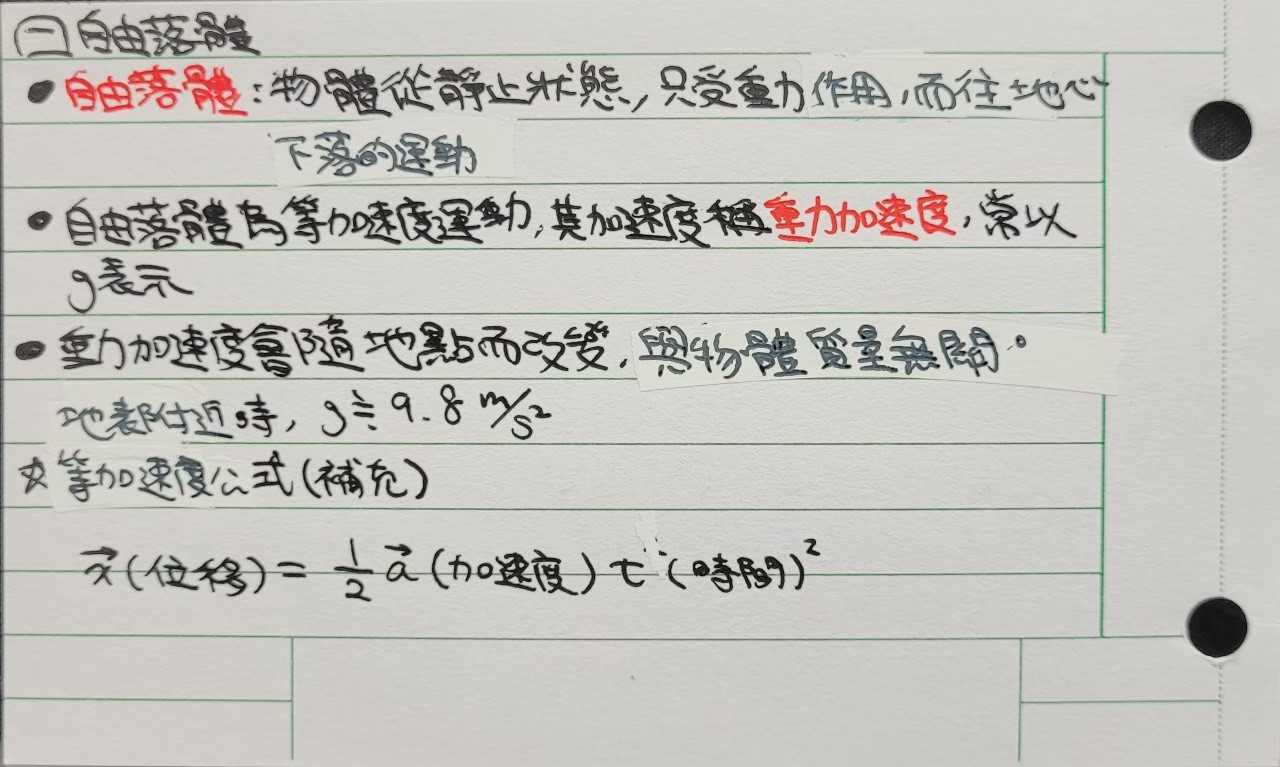 ㊀自由落體
● 自由落體：物體從靜止狀態，只受重力作用，而往地心
下落的運動
● 自由落體為等加速度運動，其加速度稱重力加速度，常以
g表示
● 重力加速度會隨地點而改變，與物體質量無關。
地表附近時，g≒9.8 m/s²
☆ 等加速度公式(補充)
x⃗(位移) = 1/2 a⃗(加速度) t (時間)²